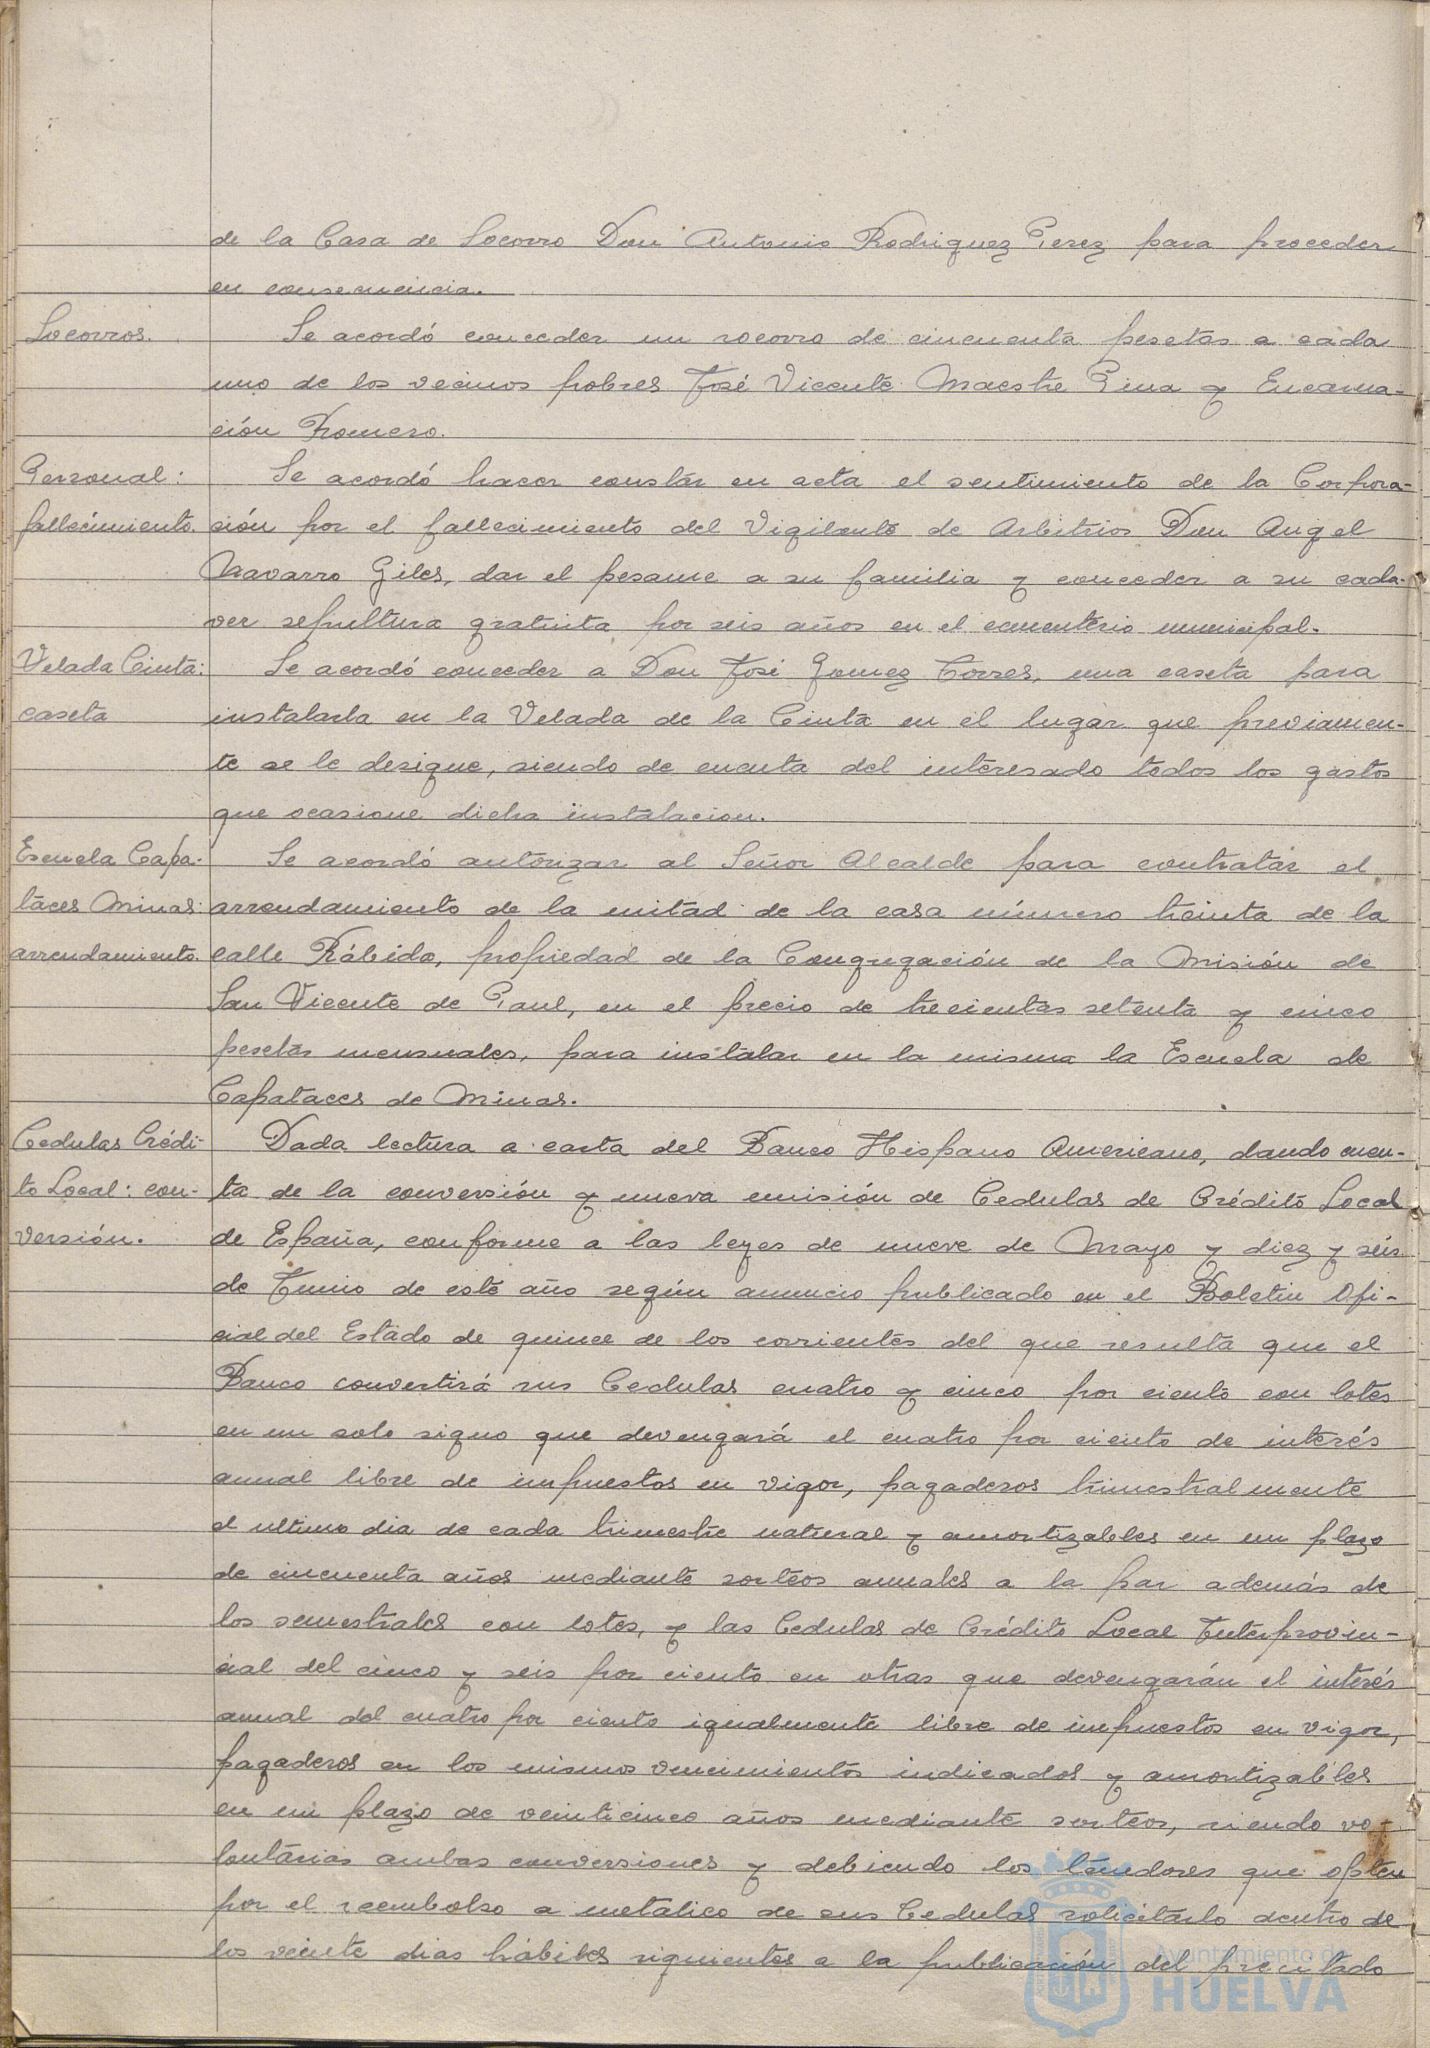 de la Casa de Socorro Don Antonio Rodriguez Perez para proceder
en consecuencia.
Socorros.
Se acordó conceder un socorro de cincuenta pesetas a cada
uno de los vecinos pobres José Vicente Maestre Pina y Encarna-
ción Romero.
Personal:
fallecimiento.
Se acordó hacer constar en acta el sentimiento de la Corpora-
ción por el fallecimiento del Vigilante de Arbitrios Don Angel
Navarro Giles, dar el pesame a su familia y conceder a su cada-
ver sepultura gratuita por seis años en el cementerio municipal.
Velada Cinta:
caseta
Se acordó conceder a Don José Gomez Torres, una caseta para
instalarla en la Velada de la Cinta en el lugar que previamen-
te se le desigue, siendo de cuenta del interesado todos los gastos
que ocasione dicha instalacion.
Escuela Capa-
taces Minas:
arrendamiento.
Se acordó autorizar al Señor Alcalde para contratar el
arrendamiento de la mitad de la casa número treinta de la
calle Rábida, propiedad de la Congregación de la Misión de
San Vicente de Paul, en el precio de trecientas setenta y cinco
pesetas mensuales, para instalar en la misma la Escuela de
Capataces de Minas.
Cedulas Crédi-
to Local: con-
versión.
Dada lectura a carta del Banco Hispano Americano, dando cuen-
ta de la conversión y nueva emisión de Cedulas de Crédito Local
de España, conforme a las leyes de nueve de Mayo y diez y seis
de Junio de este año según anuncio publicado en el Boletin Ofi-
cial del Estado de quince de los corrientes del que resulta que el
Banco convertirá sus Cedulas cuatro y cinco por ciento con lotes
en un solo signo que devengará el cuatro por ciento de interés
anual libre de impuestos en vigor, pagaderos trimestralmente
el ultimo dia de cada trimestre natural y amortizables en un plazo
de cincuenta años mediante sorteos anuales a la par además de
los semestrales con lotes, y las Cedulas de Crédito Local Interprovin-
cial del cinco y seis por ciento en otras que devengarán el interés
anual del cuatro por ciento igualmente libre de impuestos en vigor,
pagaderos en los mismos vencimientos indicados y amortizables
en un plazo de veinticinco años mediante sorteos, siendo vo-
luntarias ambas conversiones y debiendo los tenedores que opten
por el reembolso a metalico de sus Cedulas solicitarlo dentro de
los veinte dias hábiles siguientes a la publicación del precitado
Ayuntamiento de
HUELVA